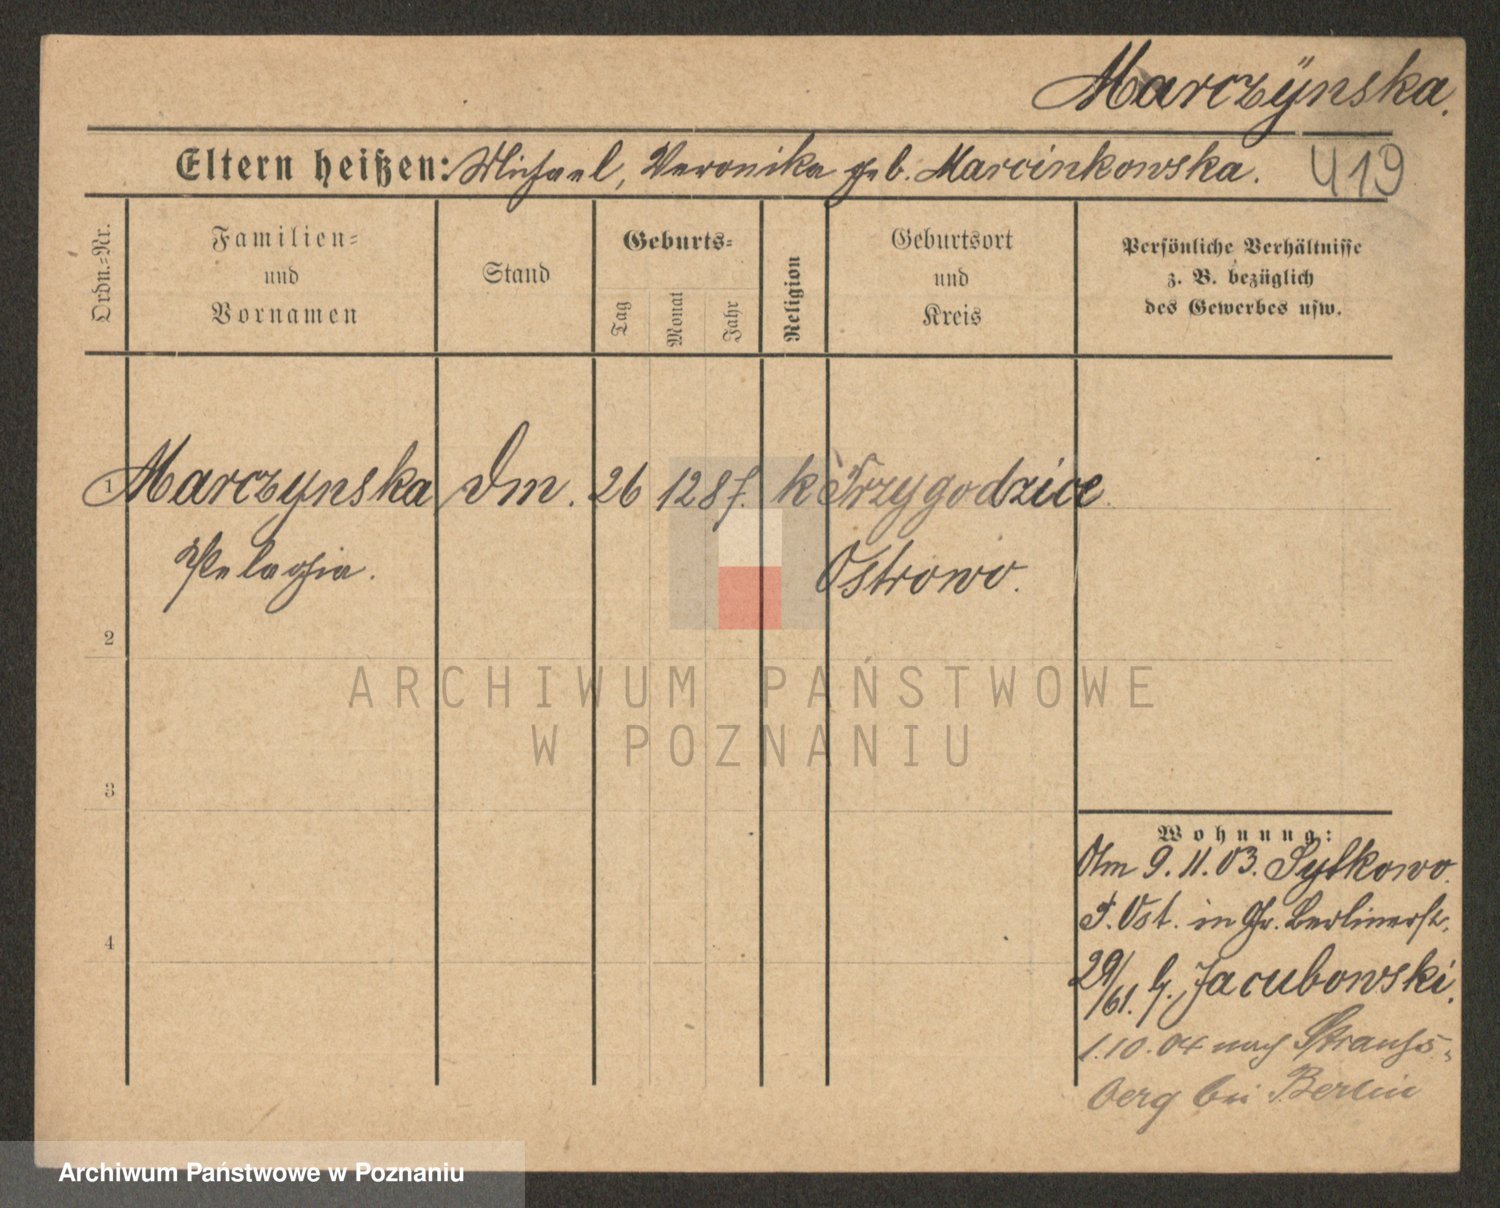 Marczÿnska.
Eltern heißen: Michael, Veronika geb. Marcinkowska.
419
Ordn.=Nr.
Familien=
und
Vornamen
Stand
Geburts=
Tag
Monat
Jahr
Religion
Geburtsort
und
Kreis
Persönliche Verhältnisse
z. B. bezüglich
des Gewerbes usw.
1 Marczynska Dm. 26 12 87. k Przygodzice
Pelagia. Ostrowo.
2
3
4
Wohnung:
9.11.03. Sytkowo.
P. Ost. in Gr. Berlinerstr.
29/61. b. Jacubowski.
1.10.04 nach Strauss=
berg bei Berlin
ARCHIWUM PAŃSTWOWE
W POZNANIU
Archiwum Państwowe w Poznaniu